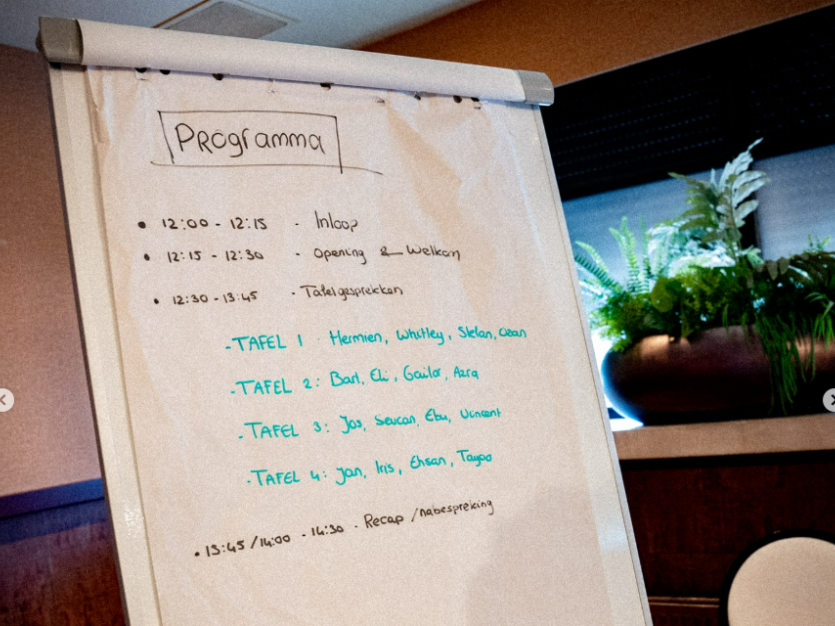 Programma
• 12:00 - 12:15 - Inloop
• 12:15 - 12:30 - Opening & Welkom
• 12:30 - 13:45 - Tafelgesprekken
- TAFEL 1 : Hermien, Whitley, Stefan,
- TAFEL 2 : Bart, Eli, Azra
- TAFEL 3 : Jos, Sevcan, Ebu, Vincent
- TAFEL 4 : Jan, Iris, Ehsan,
• 13:45 / 14:00 - 14:30 - Recap / nabespreking